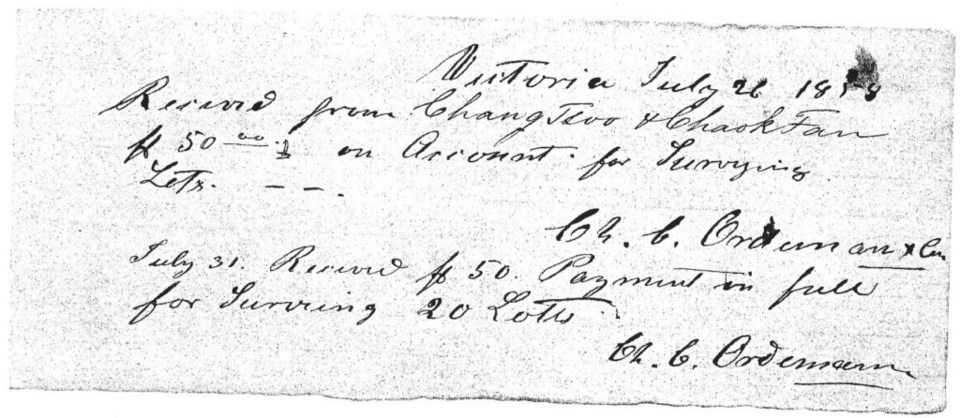 Victoria July 26 1858
Recievd from Chang Tsoo & Chaok Fan
$ 50 00 on Account for Surveying
Lots. — —.
Ch. C. Ordeman & Co
July 31. Recievd $ 50. Payment in full
for Surveing 20 Lotts
Ch. C. Ordemann